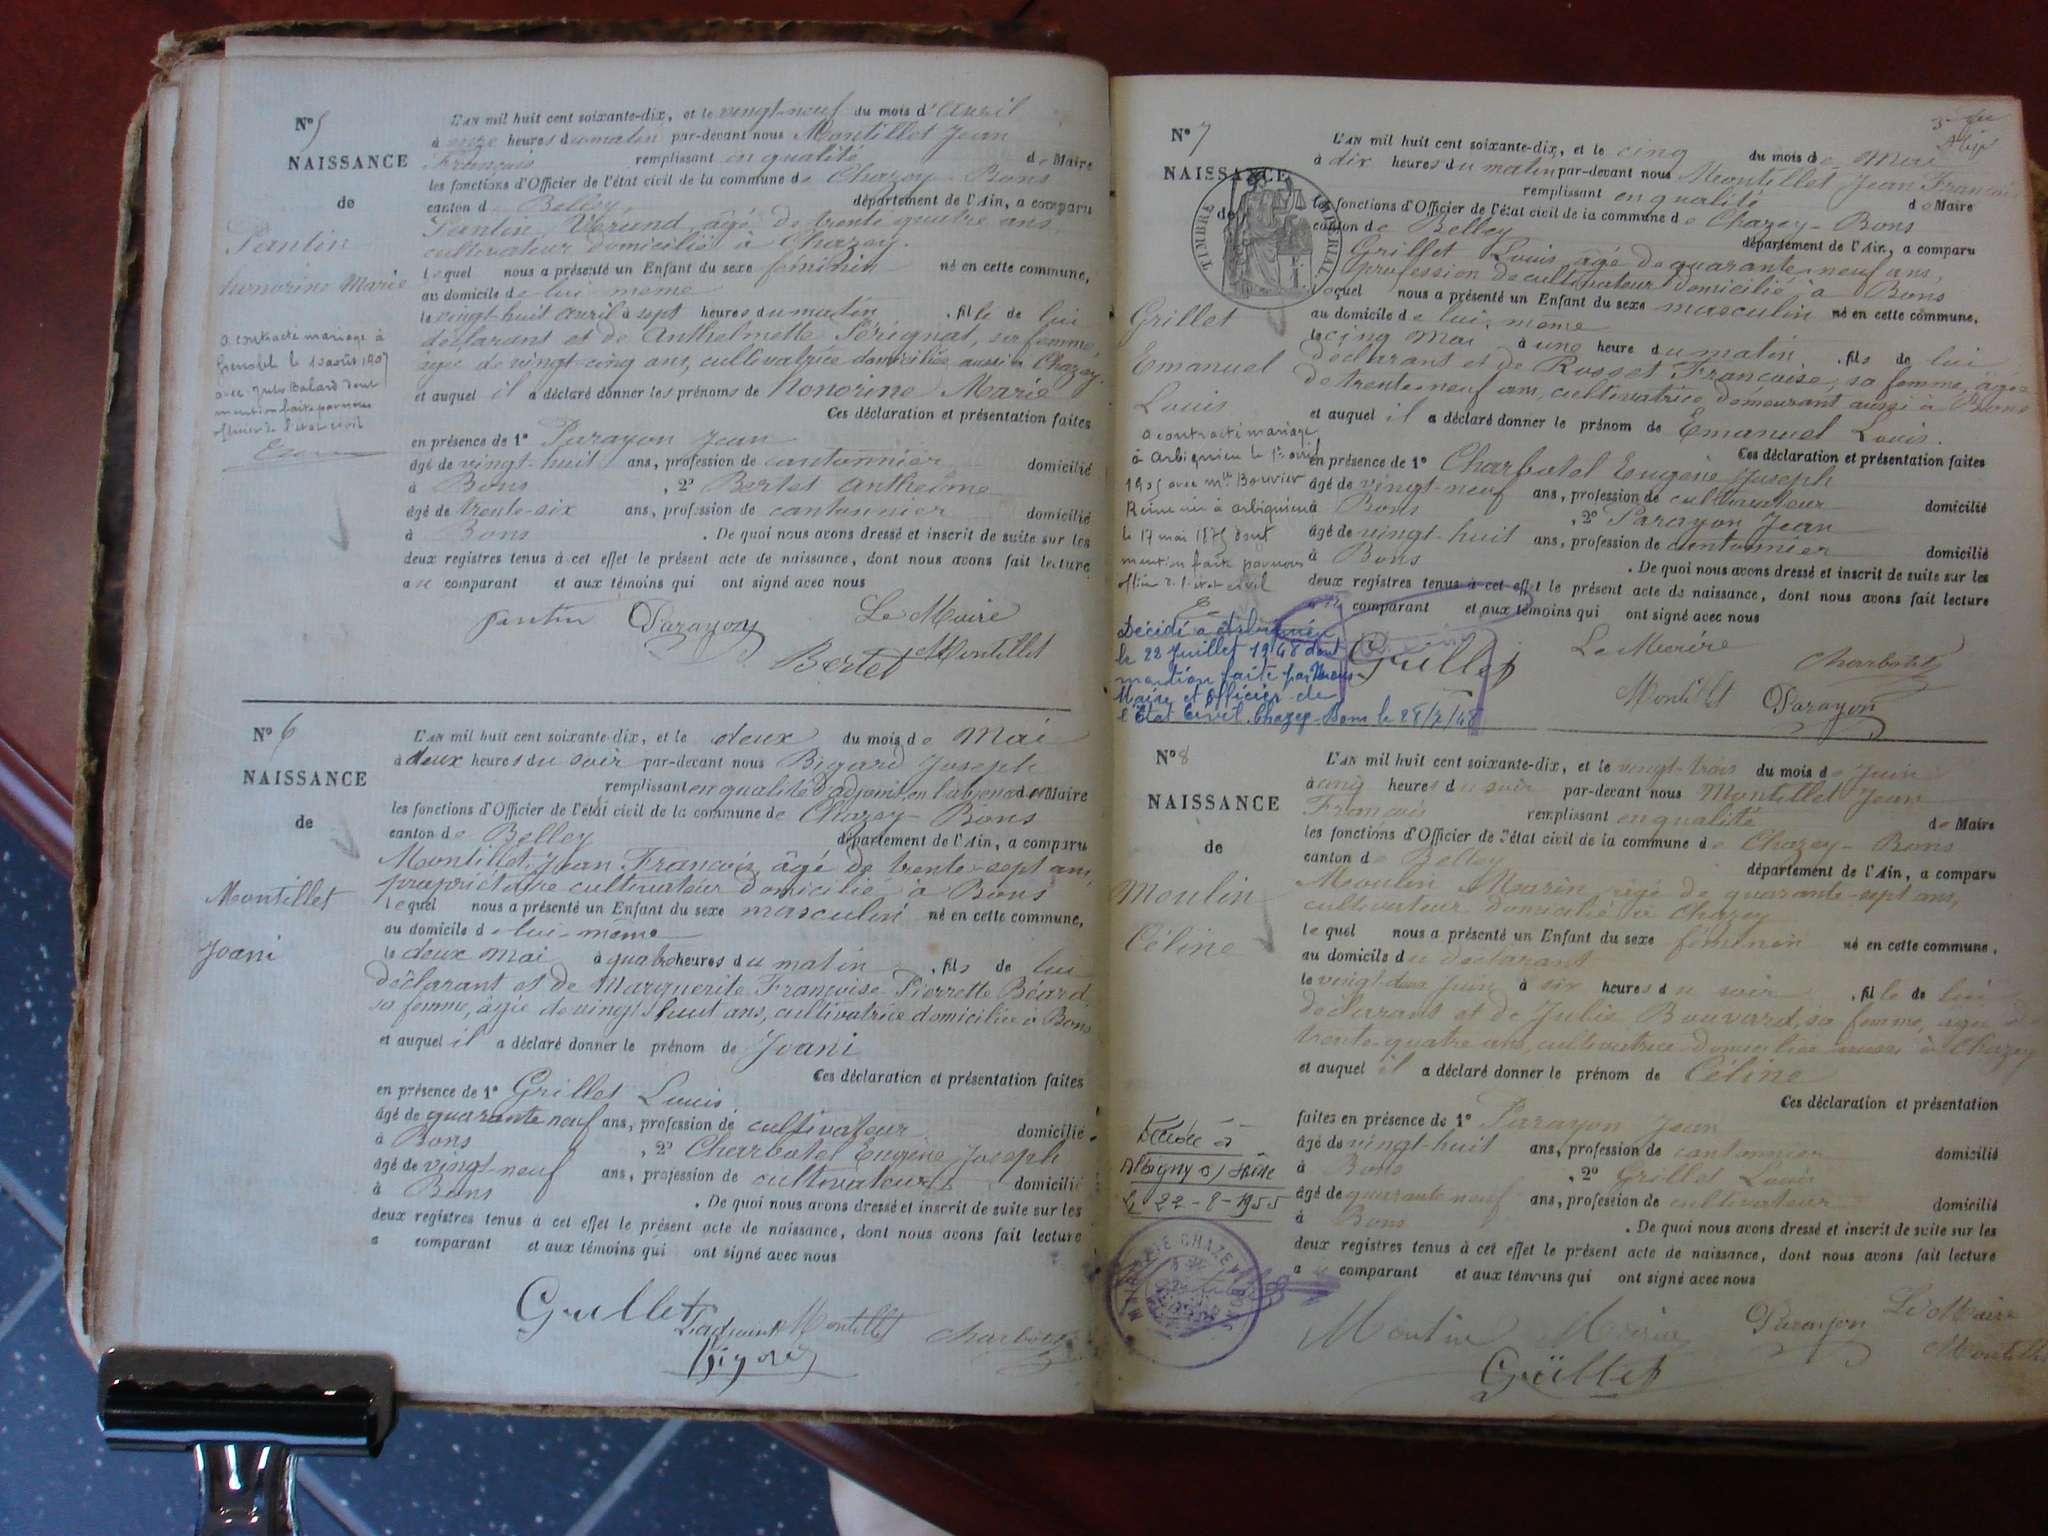 N° 5
NAISSANCE
de
Pantin
honorine Marie
a contracté mariage à
le 1 août 1907
avec Jules Balard dont
mention faite par nous
officier de l'état civil
L'AN mil huit cent soixante-dix, et le vingt-neuf du mois d'avril
à onze heures du matin par-devant nous Montillet Jean
François remplissant en qualité de Maire
les fonctions d'Officier de l'état civil de la commune de Chazey-Bons
canton d Belley département de l'Ain, a comparu
Pantin âgé de trente quatre ans
cultivateur domicilié à Chazey.
lequel nous a présenté un Enfant du sexe féminin né en cette commune,
au domicile de lui même
le vingt-huit avril à sept heures du matin, fille de lui
déclarant et de Anthelmette Pérignat, sa femme,
âgée de vingt-cinq ans, cultivatrice domiciliée aussi à Chazey.
et auquel il a déclaré donner les prénoms de honorine Marie
Ces déclaration et présentation faites
en présence de 1° Parayon Jean
âgé de vingt-huit ans, profession de cantonnier domicilié
à Bons, 2° Bertet Anthelme
âgé de trente-six ans, profession de cantonnier domicilié
à Bons. De quoi nous avons dressé et inscrit de suite sur les
deux registres tenus à cet effet le présent acte de naissance, dont nous avons fait lecture
au comparant et aux témoins qui ont signé avec nous
Pantin Parayon Le Maire
Bertet Montillet
N° 6
NAISSANCE
de
Montillet
Joani
L'AN mil huit cent soixante-dix, et le deux du mois de Mai
à deux heures du soir par-devant nous Bigard Joseph
remplissant en qualité d'adjoint en l'absence de Maire
les fonctions d'Officier de l'état civil de la commune de Chazey-Bons
canton de Belley département de l'Ain, a comparu
Montillet Jean François âgé de trente-sept ans,
propriétaire cultivateur domicilié à Bons
lequel nous a présenté un Enfant du sexe masculin né en cette commune,
au domicile de lui-même
le deux mai à quatre heures du matin, fils de lui
déclarant et de Marguerite Françoise Pierrette Béard,
sa femme, âgée de vingt huit ans, cultivatrice domiciliée à Bons
et auquel il a déclaré donner le prénom de Joani
Ces déclaration et présentation faites
en présence de 1° Grillet Louis
âgé de quarante neuf ans, profession de cultivateur domicilié
à Bons, 2° Charbotel Eugène Joseph
âgé de vingt-neuf ans, profession de cultivateur domicilié
à Bons. De quoi nous avons dressé et inscrit de suite sur les
deux registres tenus à cet effet le présent acte de naissance, dont nous avons fait lecture
a comparant et aux témoins qui ont signé avec nous
Grillet L'adjoint Montillet Charbotel
Bigard
N° 7
NAISSANCE
de
TIMBRE IMPÉRIAL
Grillet
Emanuel
Louis
a contracté mariage
à Arbignieu le 1er avril
1905 avec Mlle Bouvier
Reine née à Arbignieu
le 17 mai 1875 dont
mention faite par nous
officier d. l'état civil
Décédé à Arbignieu
le 22 Juillet 1948 dont
mention faite par Nous
Maire et Officier de
l'Etat Civil. Chazey-Bons le
L'AN mil huit cent soixante-dix, et le cinq du mois de Mai
à dix heures du matin par-devant nous Montillet Jean François
remplissant en qualité de Maire
les fonctions d'Officier de l'état civil de la commune de Chazey-Bons
canton de Belley département de l'Ain, a comparu
Grillet Louis âgé de quarante-neuf ans,
profession de cultivateur domicilié à Bons
lequel nous a présenté un Enfant du sexe masculin né en cette commune,
au domicile de lui même
le cinq Mai à une heure du matin, fils de lui
déclarant et de Rosset Françoise, sa femme, âgée
de trente-neuf ans, cultivatrice demeurant aussi à Bons
et auquel il a déclaré donner le prénom de Emanuel Louis.
Ces déclaration et présentation faites
en présence de 1° Charbotel Eugène Joseph
âgé de vingt-neuf ans, profession de cultivateur domicilié
à Bons, 2° Parayon Jean
âgé de vingt-huit ans, profession de cantonnier domicilié
à Bons. De quoi nous avons dressé et inscrit de suite sur les
deux registres tenus à cet effet le présent acte de naissance, dont nous avons fait lecture
comparant et aux témoins qui ont signé avec nous
Grillet Le Maire Charbotel
Montillet Parayon
N° 8
NAISSANCE
de
Moulin
Céline
Décédée à
Albigny s/ Saône
le 22-8-1955
MAIRIE CHAZEY-BONS
L'AN mil huit cent soixante-dix, et le vingt-trois du mois de Juin
à cinq heures du soir par-devant nous Montillet Jean
François remplissant en qualité de Maire
les fonctions d'Officier de l'état civil de la commune de Chazey-Bons
canton de Belley département de l'Ain, a comparu
Moulin Marin âgé de quarante-sept ans,
cultivateur domicilié à Chazey
lequel nous a présenté un Enfant du sexe féminin né en cette commune,
au domicile du déclarant
le vingt-deux Juin à six heures du soir, fille de lui
déclarant et de Julie Bouvard, sa femme, âgée de
trente-quatre ans, cultivatrice domiciliée aussi à Chazey
et auquel il a déclaré donner le prénom de Céline
Ces déclaration et présentation
faites en présence de 1° Parayon Jean
âgé de vingt-huit ans, profession de cantonnier domicilié
à Bons, 2° Grillet Louis
âgé de quarante neuf ans, profession de cultivateur domicilié
à Bons. De quoi nous avons dressé et inscrit de suite sur les
deux registres tenus à cet effet le présent acte de naissance, dont nous avons fait lecture
au comparant et aux témoins qui ont signé avec nous
Moulin Marin Parayon Le Maire
Grillet Montillet